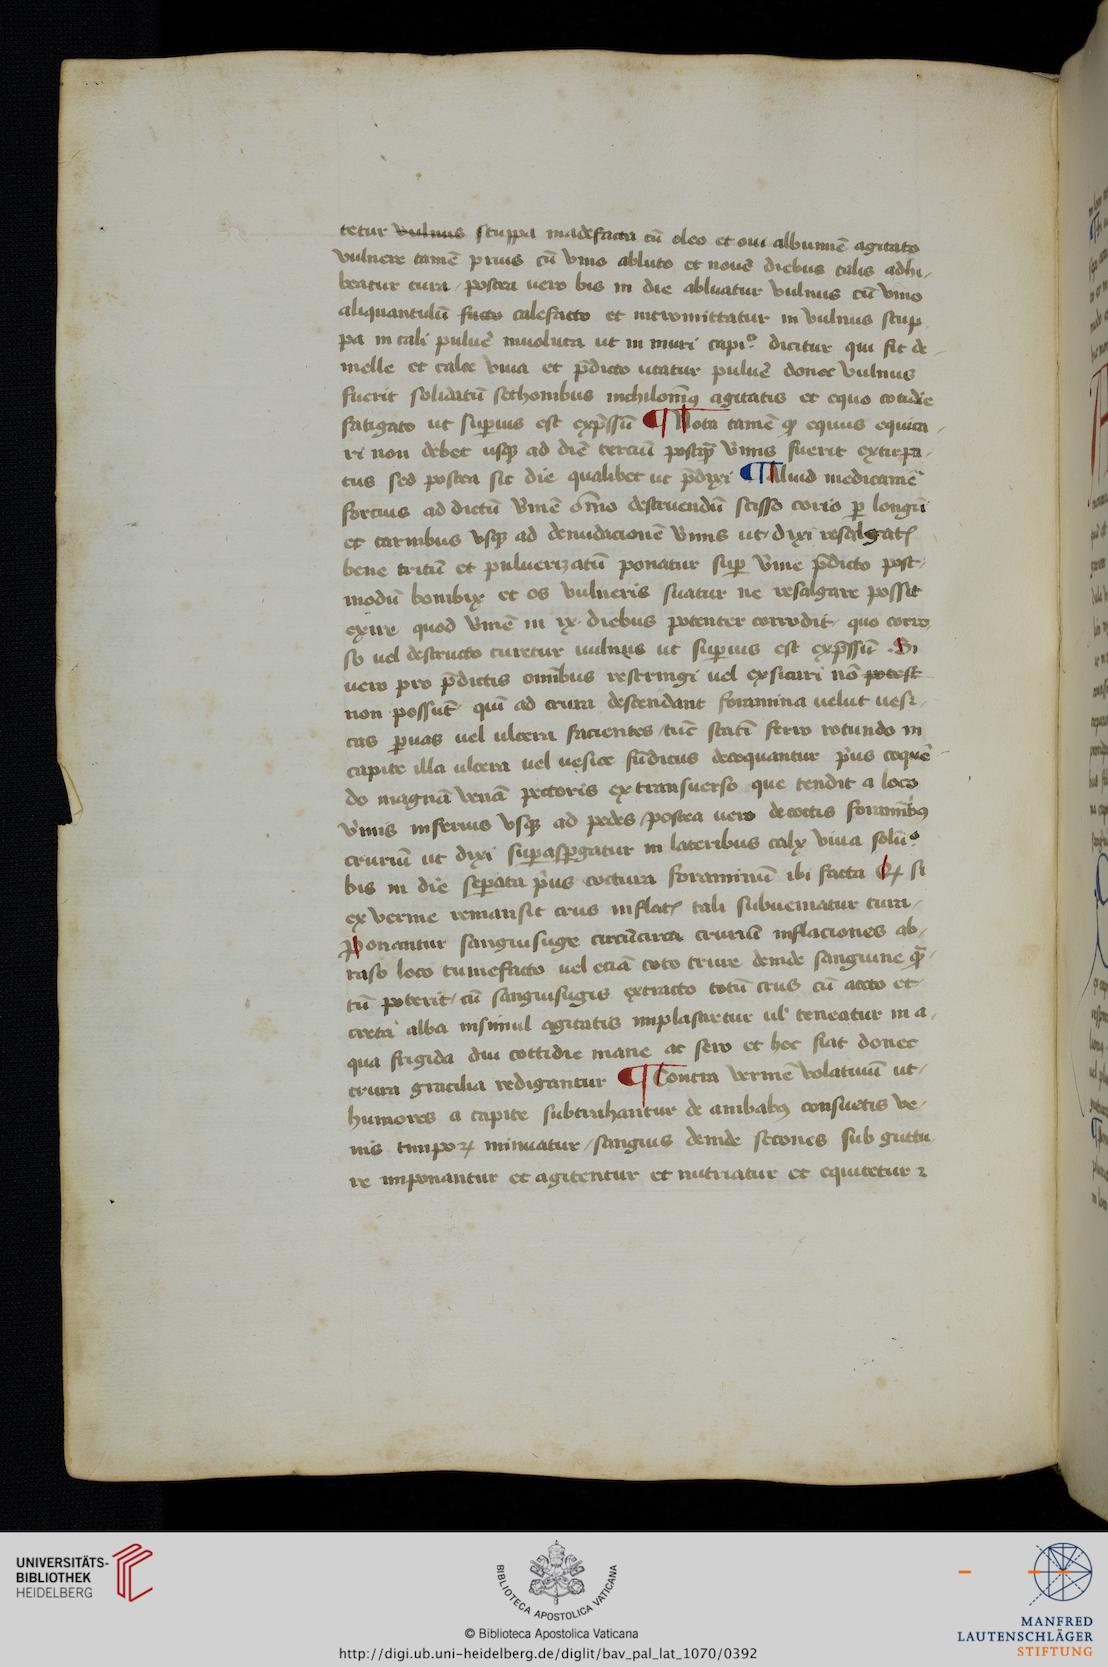 tetur vulnus stuppa madefacta cū oleo et oui albumīe agitato
vulnere tamē prius cū vino abluto et nouē diebus talis adhi,
beatur cura / postea uero bis in die abluatur vulnus cū vino
aliquantulū facto calefacto et intromittatur in vulnus stup
pa in tali puluē inuoluta ut in muri capi° dicitur qui fit de
melle et calce viua et p̄dicto utatur puluē donec vulnus
fuerit solidatū sethonibus nichilomīꝯ agitatis et equo cotidie
fatigato ut suꝑius est exp̄ssū ¶ Nota tamē ꝙ equus equita
ri non debet usqꝫ ad diē terciū postqꝫ v̄mis fuerit extirpa
tus sed postea sit die qualibet ut p̄dixi ¶ Aliud medicamē
forcius ad dictū v̄mē om̄o destruendū scisso corio ꝑ longū
et carnibus vsqꝫ ad denudacionē v̄mis ut dixi resalgat
bene tritū et puluerizatū ponatur suꝑ v̄me p̄dicto post
modū bombix et os vulneris suatur ne resalgare possit
exire quod v̄mē in ix diebus potenter corrodit quo corro
so uel destructo curetur uulnus ut suꝑius est exp̄ssū Si
vero pro p̄dictis omībus restringi uel exsicari nō potest
non possūt quī ad crura descendant foramina velut uesi,
cas ꝑuas uel ulcera facientes / tūc statī ferro rotundo in
capite illa ulcera uel uesice fūdicus decoquantur p̄us coquē
do magnā venā pectoris ex transuerso que tendit a loco
v̄mis inferius vsqꝫ ad pedes / postea uero decoctis foramībꝯ
cruriū ut dixi suꝑasꝑgatur in lateribus calx viua solū°
bis in die seꝑata p̄us coctura foraminū ibi facta Qꝛ si
ex verme remansit crus inflat tali subueniatur cura
Ponantur sanguisuge circūcirca cruriū inflaciones ab,
raso loco tumefacto uel eciā toto crure deinde sanguine qꝫ
tū poterit / cū sanguisugis extracto totū crus cū aceto et
creta alba insimul agitatis implastretur ul' teneatur in a,
qua frigida diu cottidie mane ac sero et hec fiat donec
crura gracilia redigantur ¶ Contra vermē volatiuū ut
humores a capite subtrahantur de ambabꝯ consuetis ve
nis timpoꝝ minuatur / sanguis deinde setones sub guttu
re imponantur et agitentur et nutriatur et equitetur ꝛ
UNIVERSITÄTS-
BIBLIOTHEK
HEIDELBERG
BIBLIOTECA APOSTOLICA VATICANA
© Biblioteca Apostolica Vaticana
http://digi.ub.uni-heidelberg.de/diglit/bav_pal_lat_1070/0392
MANFRED
LAUTENSCHLÄGER
STIFTUNG